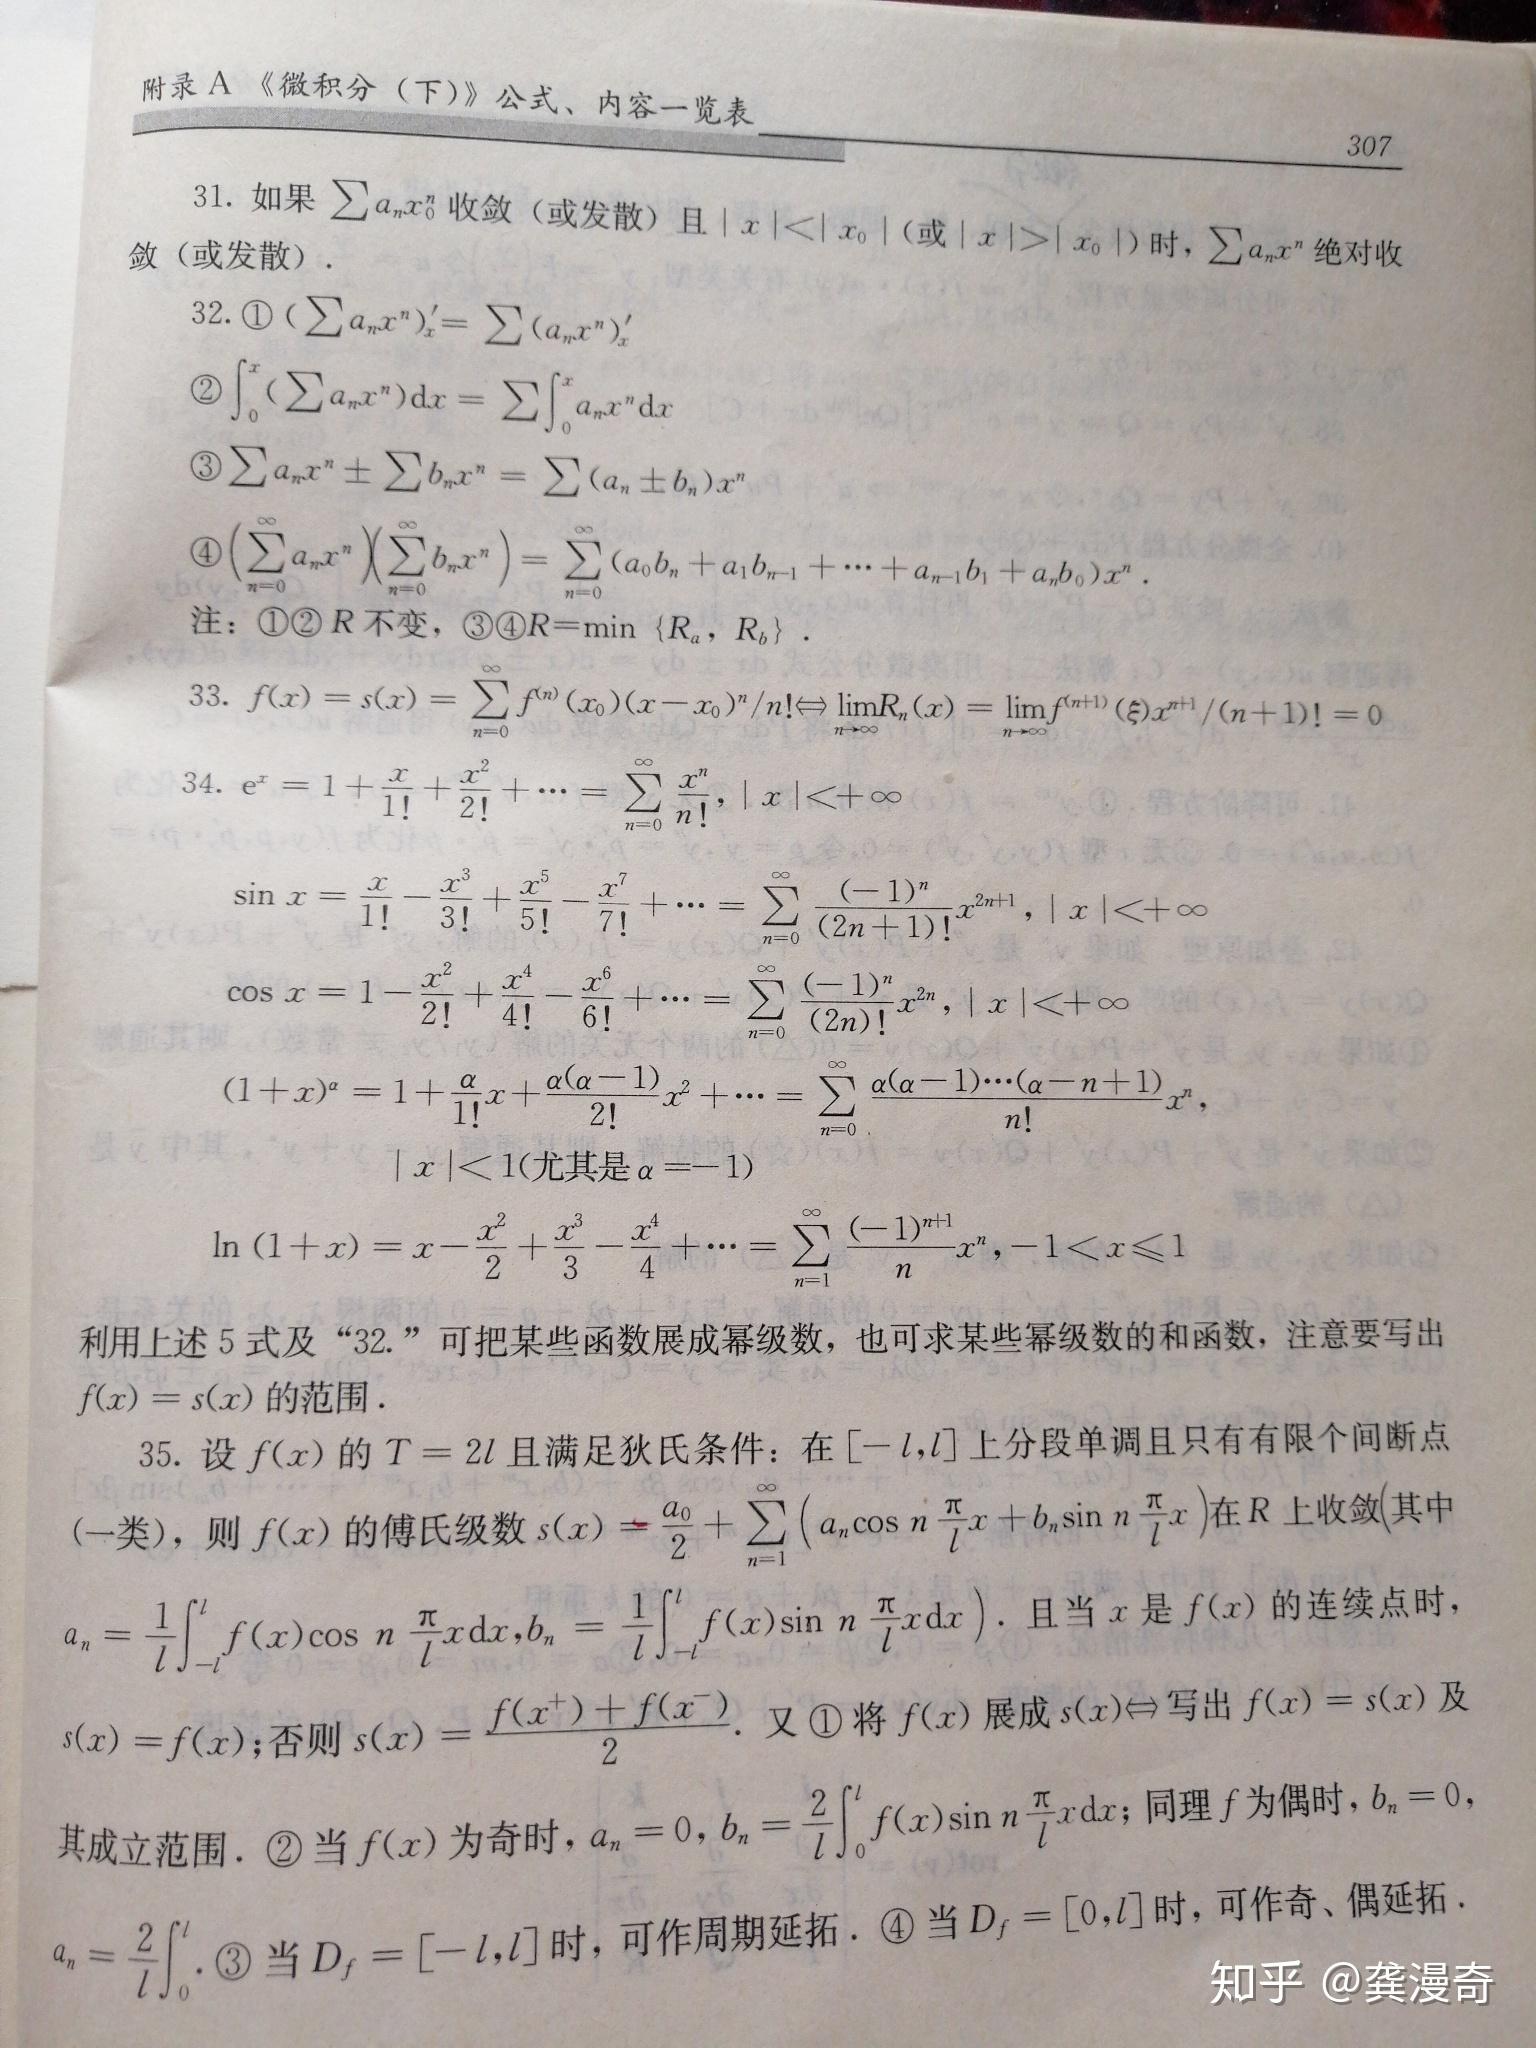 附录 A 《微积分（下）》公式、内容一览表
307
31. 如果 ∑aₙx₀ⁿ 收敛（或发散）且 | x |<| x₀ |（或 | x |>| x₀ |）时，∑aₙxⁿ 绝对收
敛（或发散）.
32. ① (∑aₙxⁿ)′ₓ = ∑(aₙxⁿ)′ₓ
② ∫₀ˣ(∑aₙxⁿ)dx = ∑∫₀ˣaₙxⁿdx
③ ∑aₙxⁿ ± ∑bₙxⁿ = ∑(aₙ ± bₙ)xⁿ
④ (∑_{n=0}^{∞} aₙxⁿ)(∑_{n=0}^{∞} bₙxⁿ) = ∑_{n=0}^{∞} (a₀bₙ + a₁bₙ₋₁ + ⋯ + aₙ₋₁b₁ + aₙb₀)xⁿ .
注：①② R 不变，③④R=min {Rₐ，R_b} .
33. f(x) = s(x) = ∑_{n=0}^{∞} f⁽ⁿ⁾(x₀)(x−x₀)ⁿ/n! ⇔ lim_{n→∞} Rₙ(x) = lim_{n→∞} f⁽ⁿ⁺¹⁾(ξ)xⁿ⁺¹/(n+1)! = 0
34. eˣ = 1 + x/1! + x²/2! + ⋯ = ∑_{n=0}^{∞} xⁿ/n!, | x |<+∞
sin x = x/1! − x³/3! + x⁵/5! − x⁷/7! + ⋯ = ∑_{n=0}^{∞} (−1)ⁿ/(2n+1)! x²ⁿ⁺¹, | x |<+∞
cos x = 1 − x²/2! + x⁴/4! − x⁶/6! + ⋯ = ∑_{n=0}^{∞} (−1)ⁿ/(2n)! x²ⁿ, | x |<+∞
(1+x)^α = 1 + α/1! x + α(α−1)/2! x² + ⋯ = ∑_{n=0}^{∞} α(α−1)⋯(α−n+1)/n! xⁿ,
| x |<1(尤其是 α =−1)
ln (1+x) = x − x²/2 + x³/3 − x⁴/4 + ⋯ = ∑_{n=1}^{∞} (−1)ⁿ⁺¹/n xⁿ, −1<x⩽1
利用上述 5 式及“32.”可把某些函数展成幂级数，也可求某些幂级数的和函数，注意要写出
f(x) = s(x) 的范围 .
35. 设 f(x) 的 T = 2l 且满足狄氏条件：在 [−l,l] 上分段单调且只有有限个间断点
(一类)，则 f(x) 的傅氏级数 s(x) = a₀/2 + ∑_{n=1}^{∞} (aₙcos n π/l x + bₙsin n π/l x) 在 R 上收敛(其中
aₙ = 1/l ∫_{−l}^{l} f(x)cos n π/l xdx, bₙ = 1/l ∫_{−l}^{l} f(x)sin n π/l xdx) . 且当 x 是 f(x) 的连续点时，
s(x) = f(x);否则 s(x) = (f(x⁺) + f(x⁻))/2 . 又 ① 将 f(x) 展成 s(x)⇔ 写出 f(x) = s(x) 及
其成立范围 . ② 当 f(x) 为奇时，aₙ = 0, bₙ = 2/l ∫₀ˡ f(x)sin n π/l xdx; 同理 f 为偶时，bₙ = 0,
aₙ = 2/l ∫₀ˡ. ③ 当 D_f = [−l,l] 时，可作周期延拓 . ④ 当 D_f = [0,l] 时，可作奇、偶延拓 .
知乎 @龚漫奇